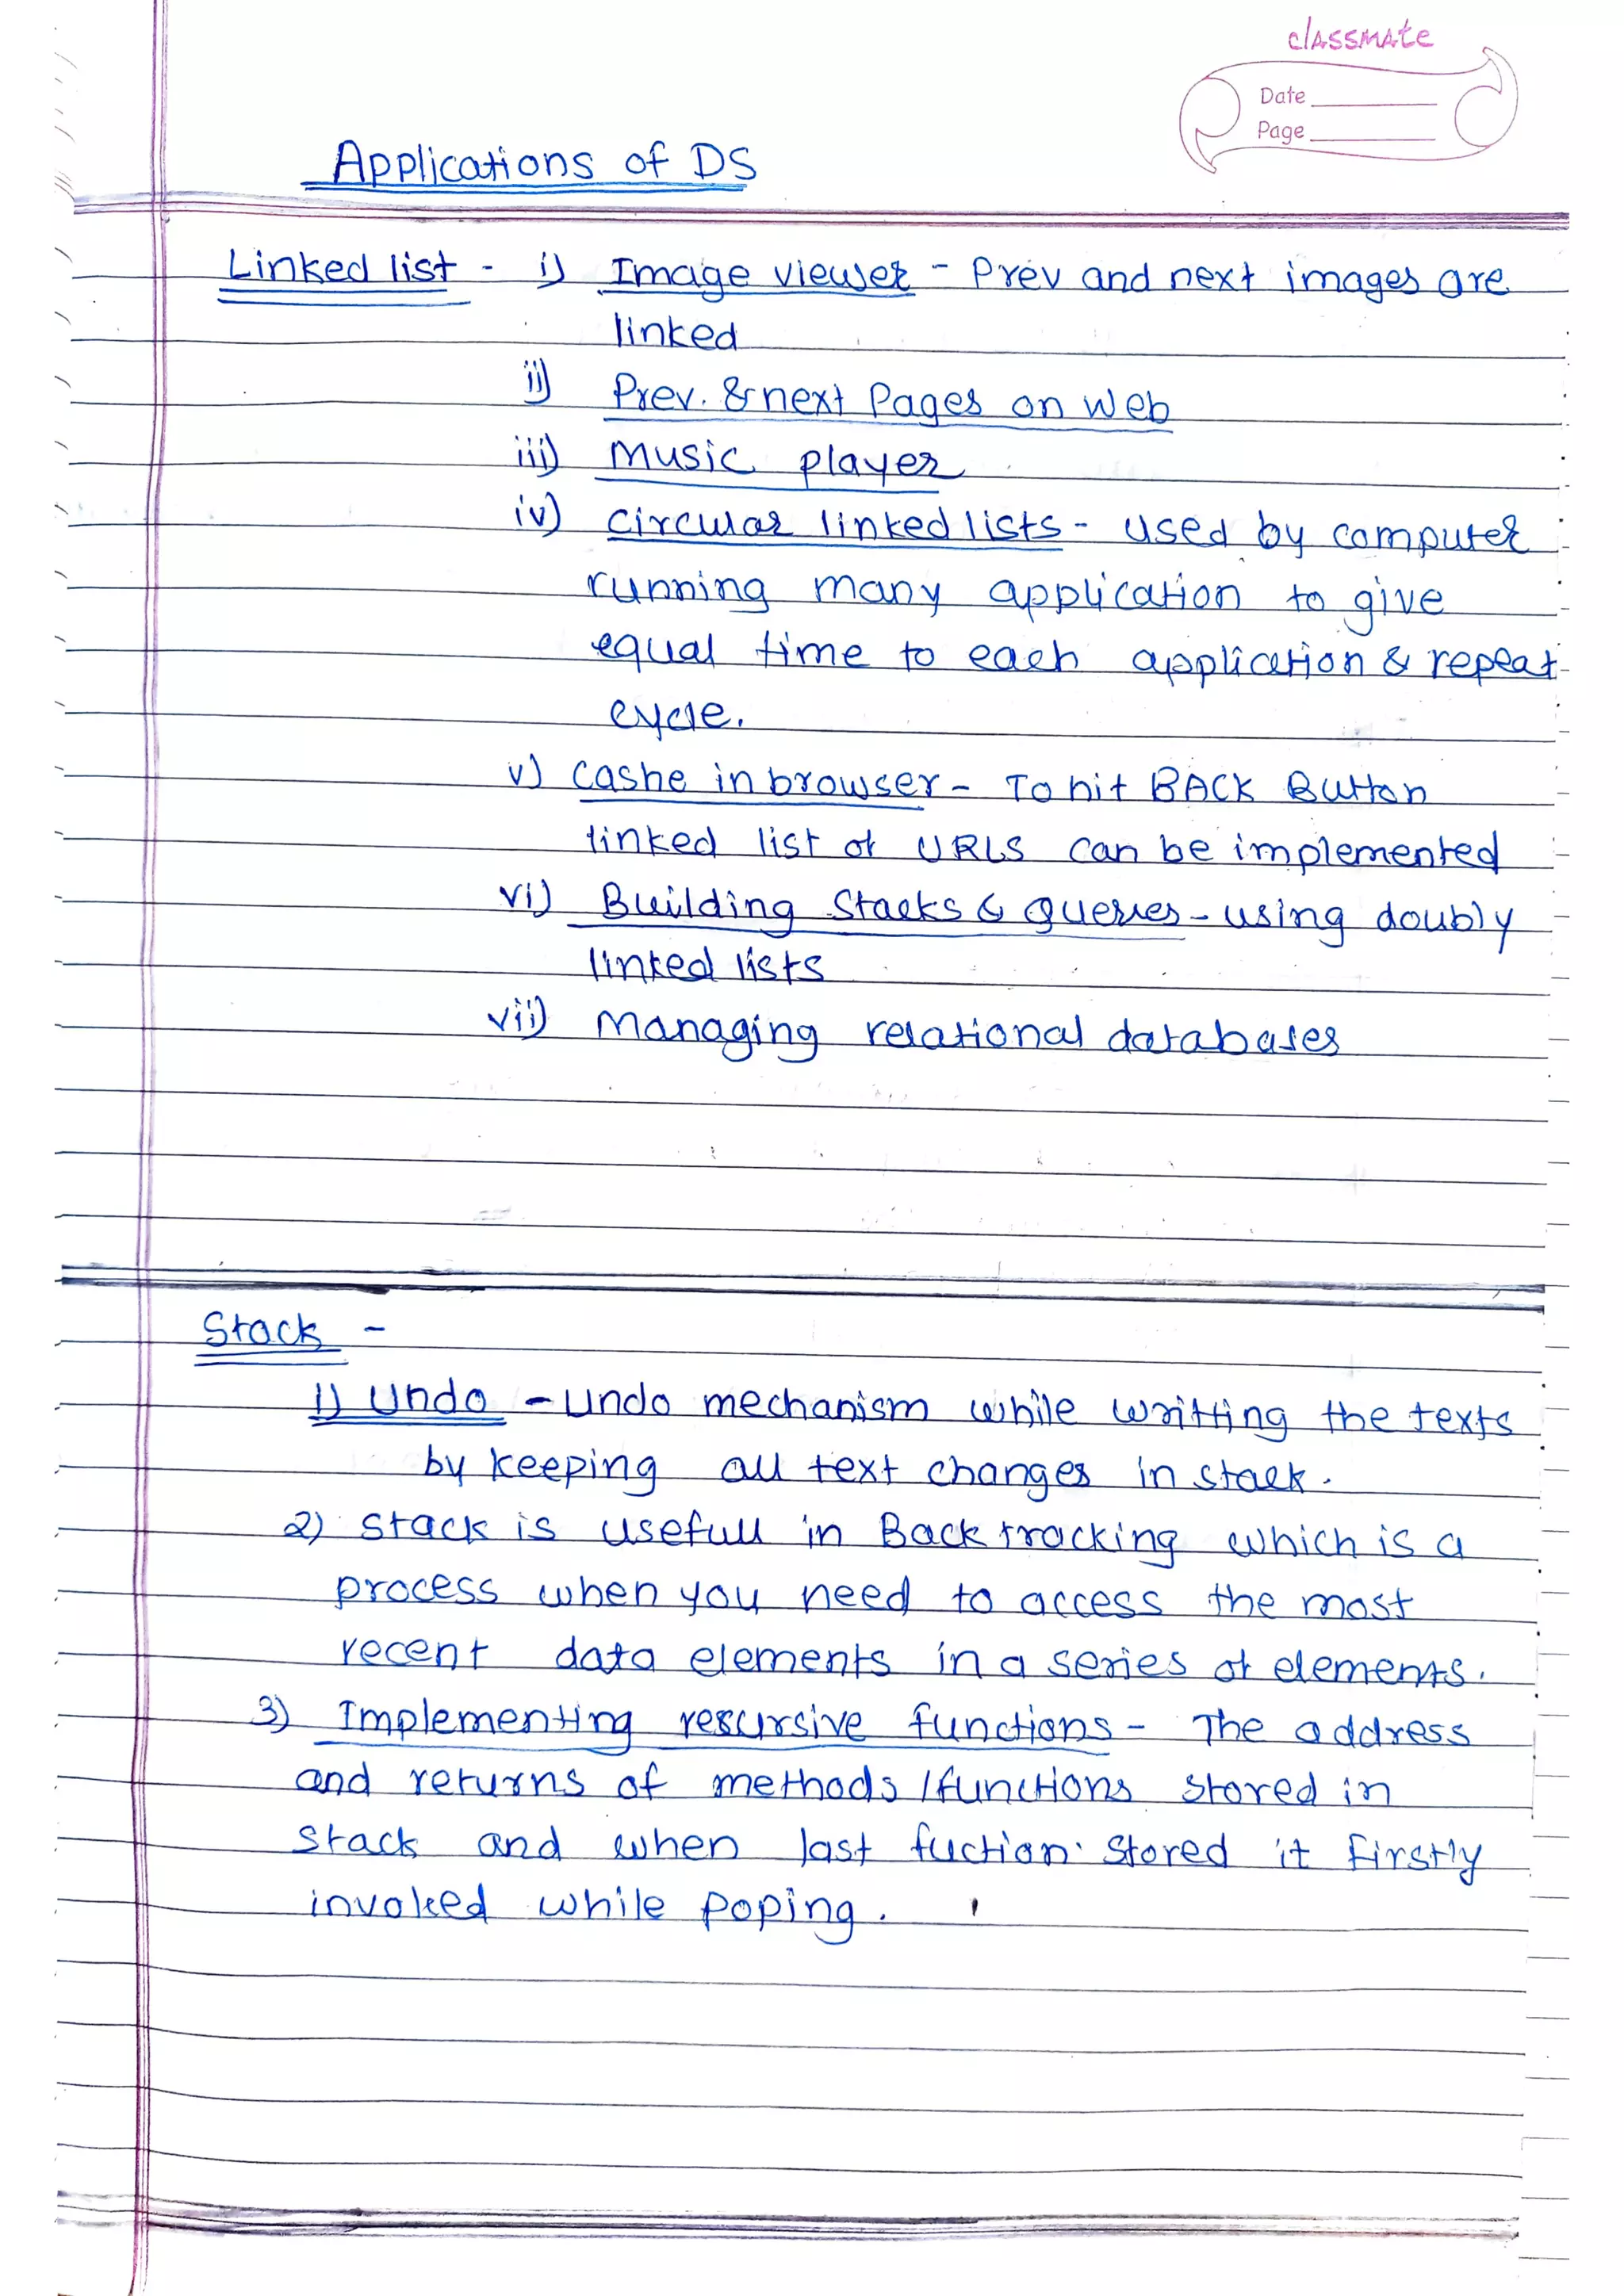 classmate
Date
Page
Applications of DS
Linked list - i) Image viewer - Prev and next images are
linked
ii) Prev. & next Pages on Web
iii) Music player
iv) circular linked lists - used by computer
running many application to give
equal time to each application & repeat
cycle.
v) cashe in browser - To hit BACK Button
linked list of URLS can be implemented
vi) Building Stacks & queries - using doubly
linked lists
vii) Managing relational databases
Stack -
1) Undo - Undo mechanism while writting the texts
by keeping all text changes in stack.
2) stack is usefull in Back tracking which is a
process when you need to access the most
recent data elements in a series of elements.
3) Implementing rescursive functions - The address
and returns of methods / functions stored in
stack and when last fuction stored it firstly
invoked while poping.